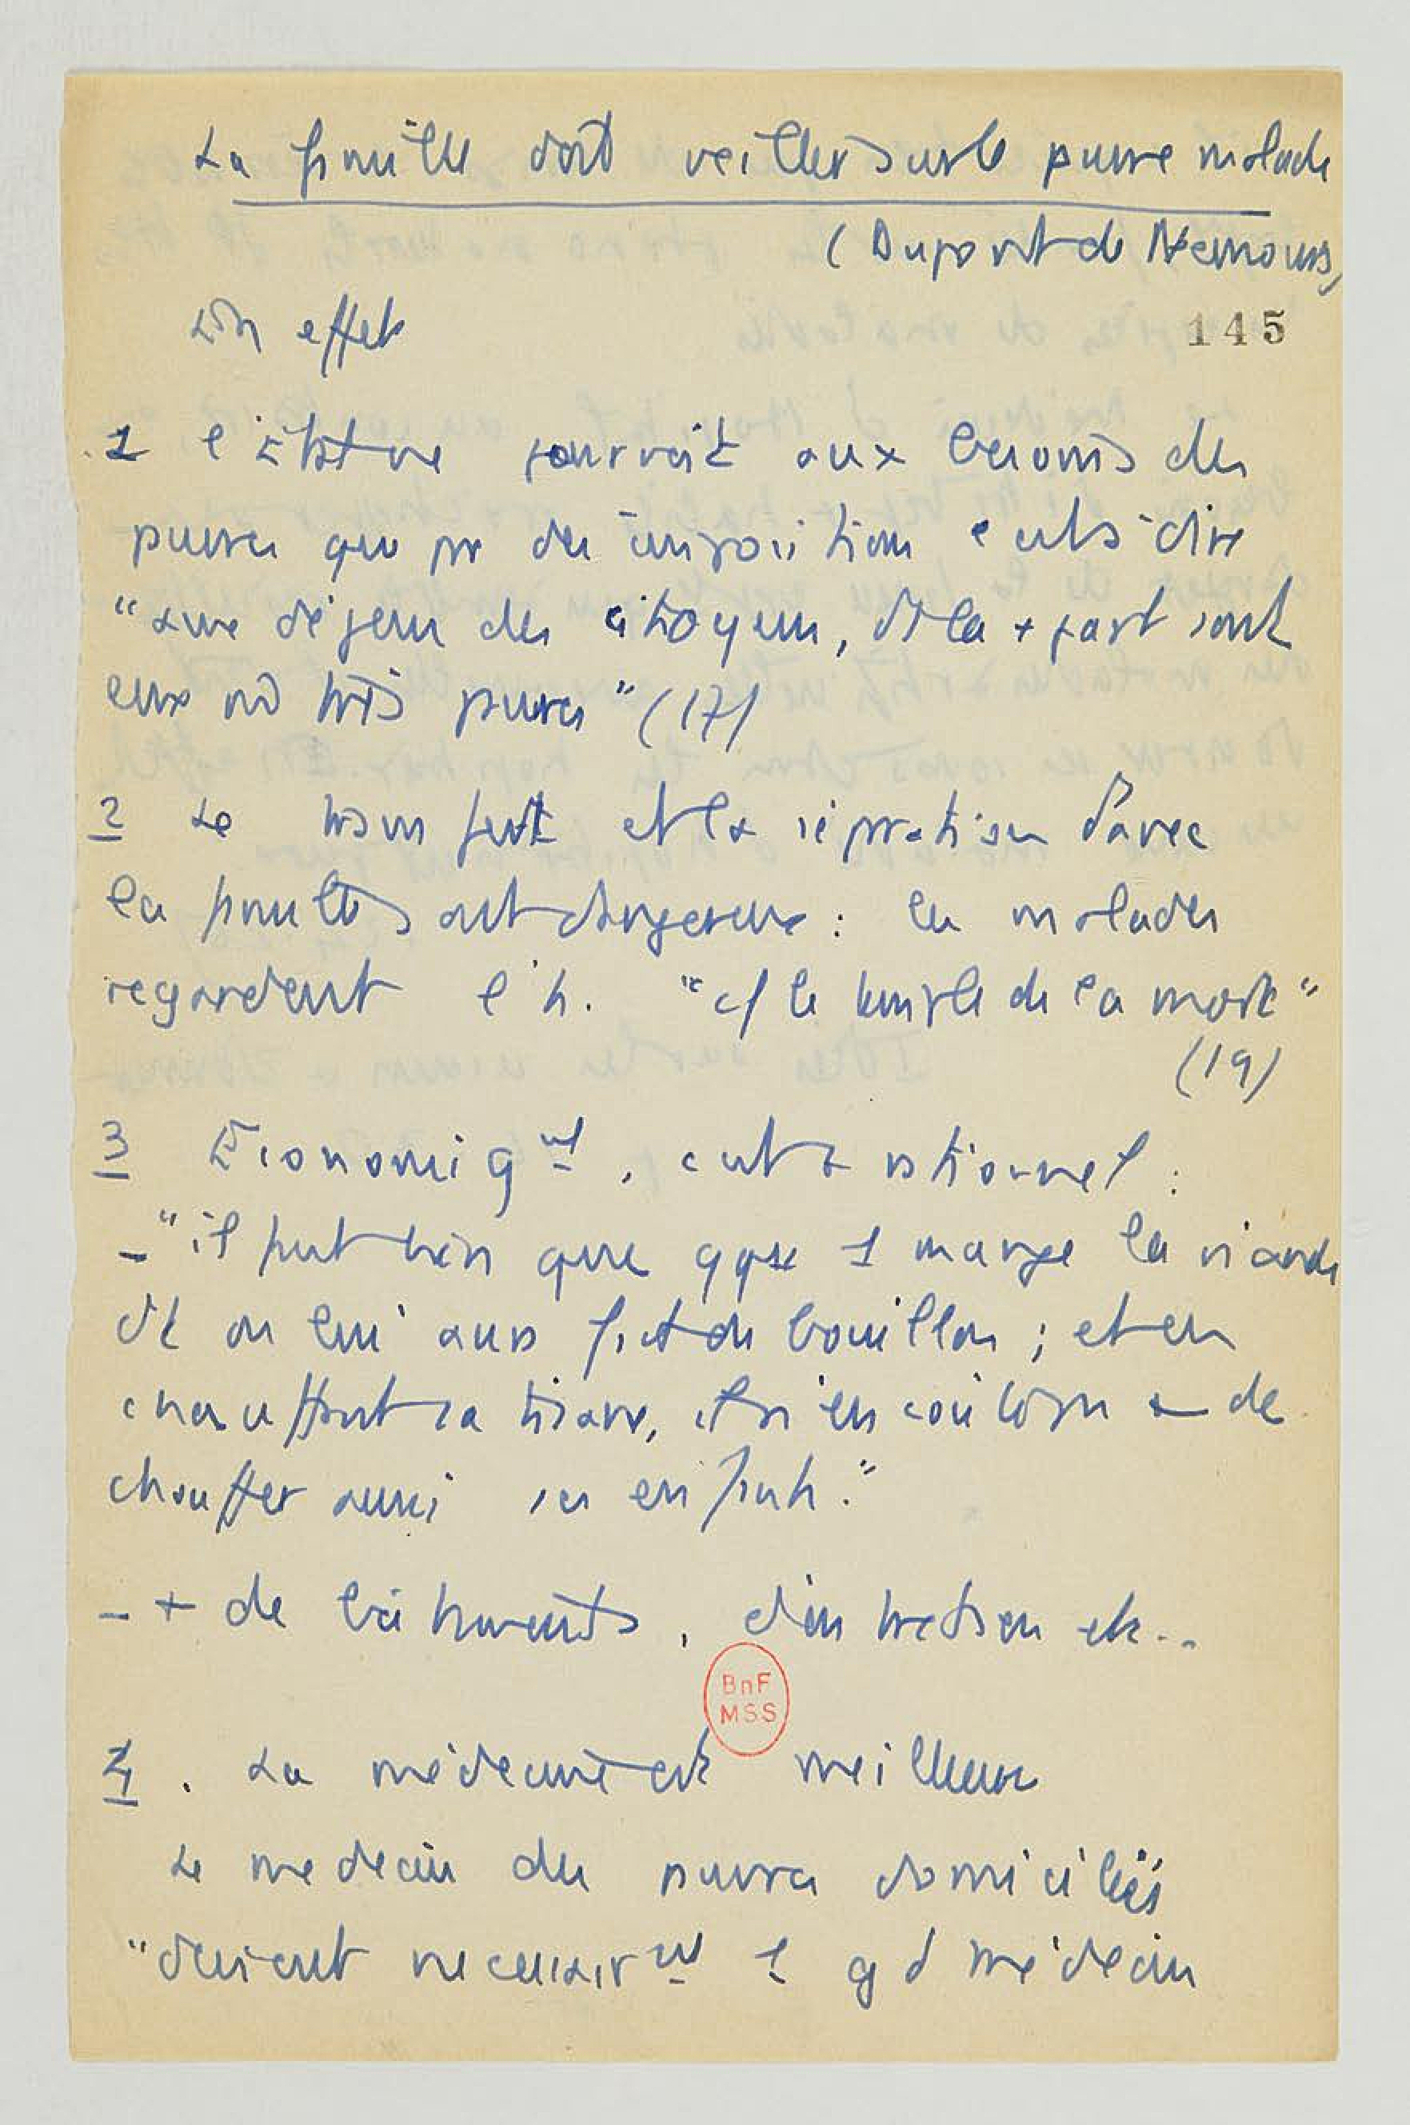 La famille doit veiller sur le pauvre malade
(Dupont de Nemours)
En effet
145
1 l'État ne pourvoit aux besoins des
pauvres que par des impositions c'est-à-dire
"aux dépens des citoyens, dt la + part sont
eux m très pauvres" (17)
2 Le transport et la séparation d'avec
la famille sont dangereux : les malades
regardent l'h. "cf le temple de la mort"
(19)
3 Economiqut, c'est rationnel :
- "il faut bien que qque 1 mange la viande
dt on lui aura fait du bouillon ; et en
chauffant sa tisane, il n'en coûte rien de
chauffer aussi ses enfants."
- + de bâtiments, d'entretien etc..
BnF
MSS
4. La médecine est meilleure
Le medecin des pauvres domiciliés
"devient necessairmt 1 gd médecin